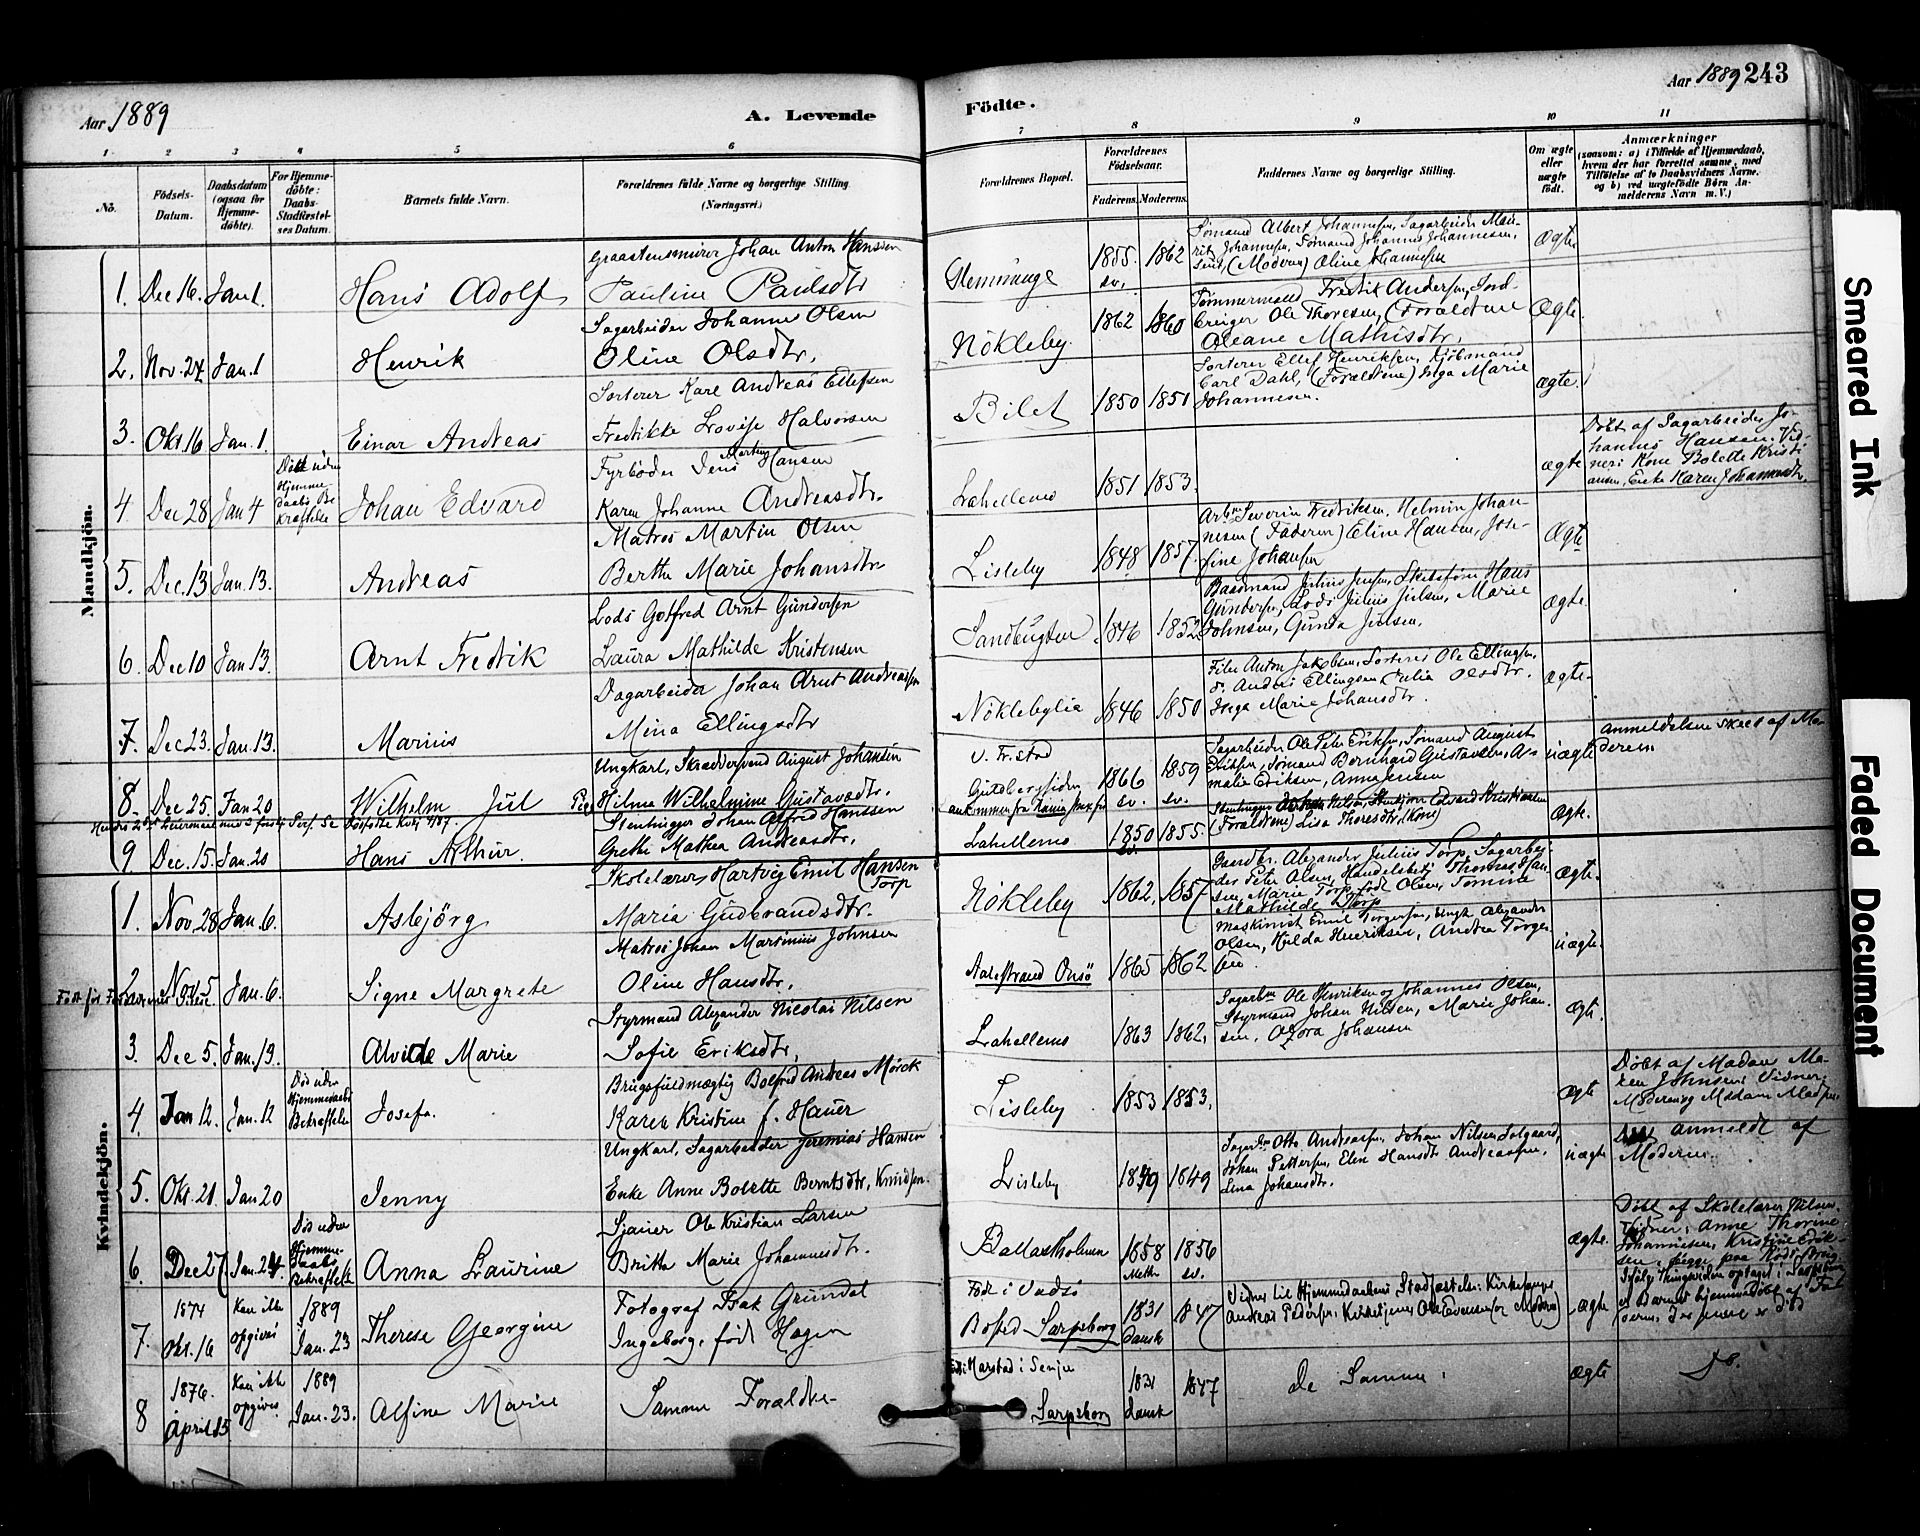 Aar 1889
A. Levende
Födte.
Aar 1889 243
1 2 3 4 5 6 7 8 9 10 11
No.
Födsels-Datum.
Daabsdatum (ogsaa for Hjemme-döbte).
For Hjemme-döbte: Daabs-Stadfæstel-ses Datum.
Barnets fulde Navn.
Forældrenes fulde Navne og borgerlige Stilling. (Næringsvei.)
Forældrenes Bopæl.
Forældrenes Födselsaar.
Faderens. Moderens.
Faddernes Navne og borgerlige Stilling.
Om ægte eller uægte födt.
Anmærkninger
(saasom: a) i Tilfælde af Hjemmedaab, hvem der har forrettet samme, med Tilföielse af to Daabsvidners Navne, og b) ved uægtefödte Börn An-melderens Navn m. V.)
Mandkjön.
1. Dec 16. Jan 1. Hans Adolf
Graastensmurer Johan Anton Hanssen
Pauline Paulsdtr
Glemminge 1855. sv. 1862
Sömand Albert Johannesen, Sagarbeider
Johannesen, Sömand Johannes Johannesen,
(Moderen) Oline Johannesen
Ægte
2. Nov. 24 Jan. 1 Henrik
Sagarbeider Johannes Olsen
Oline Olsdtr.
Nökleby. 1862 1860
Tömmermand Fredrik Andersen,
Ole Thoresen, (Forældrene
Oleane Mathisdtr.
Ægte.
3. Okt 16 Jan. 1 Einar Andreas
Sorterer Karl Andreas Ellefsen
Fredrikke Lovise Halvorsen
Bilet 1850 1851
Sorterer Ellef Henriksen, Kjöbmand
Carl Dahl, (Forældrene) Inga Marie
Johannesen.
ægte.
4. Dec 28 Jan 4
Död uden Hjemme-daabs Be-kræftelse
Johan Edvard
Fyrböder Jens Martin Hansen
Karen Johanne Andreasdtr.
Lahellemo 1851 1853.
ægte
Döbt af Sagarbeider Jo-
hannes Hansen. Vid-
ner: Kone Bolette Kristi-
ansen, Enke Karen Johannesdtr.
5. Dec. 13 Jan. 13. Andreas
Matros Martin Olsen
Berthe Marie Johansdtr
Lisleby 1848 1857.
Arb. Severin Fredriksen, Helmin Johan-
nesen (Faderen) Eline Hansen, Jose-
fine Johansen
Ægte
6. Dec 10 Jan 13. Arnt Fredrik
Lods Gotfred Arnt Gundersen
Laura Mathilde Kristensen
Sandbugten 1846 1852
Baadmand Julius Jensen, Skibsförer Hans
Gundersen, Lods Julius Julsen, Marie
Johnsen, Gunda Jensen.
ægte.
7. Dec 23. Jan. 13. Marius
Dagarbeider Johan Arnt Andreassen
Mina Ellingsdtr
Nöklebylie 1846 1850
Filer Anton Jakobsen, Sorterer Ole Ellingsen,
Andrei Ellingsen, Julia Olsdtr.
Inga Marie Johansdtr.
ægte.
8. Dec 25. Jan 20 Wilhelm Jul
Ungkarl, Skræddersvend August Johansen
Pige Hilma Wilhelmine Gustavsdtr.
v. Fr.stad
Gudbergsiden 1866 sv. 1859 sv.
ankommen fra
Sagarbeider Ole Peter Eriksen, Sömand August
Eriksen, Sömand Bernhard Gustavsen, A-
malie Eriksen, Anna Jensen
uægte
Anmeldelsen skeet af Mo-
deren.
9. Dec. 15. Jan. 20 Hans Arthur.
Stenhugger Johan Alfred Hanssen
Grethe Mathea Andreasdtr.
Lahellemo 1850 sv. 1855.
Stenhugger Johan Nilsen, Edvard Kristiansen
(Forældrene) Lisa Thoresdtr. (Kone)
ægte.
Kvindekjön.
1. Nov. 28 Jan. 6. Asbjörg
Skolelærer Hartvig Emil Hansen Torp
Maria Gudbrandsdtr.
Nökleby 1862, 1857
Gaardbr. Alexander Julius Torp, Sagarbei-
der Peter Olsen, Handelsbetj. Thomas Han-
sen, Marie Torp födt Olsen, Tomine
Mathilde Torp
ægte.
2 Nov. 5 Jan. 6. Signe Margrete
Matros Johan Martinius Johnsen
Oline Hansdtr.
Aalestrand Onsö 1865 1862
Maskinist Emil Torgersen, Ungk. Alexander
Olsen, Hulda Henriksen, Andrea Torger-
sen.
uægte.
3. Dec 5. Jan. 13. Alvilde Marie
Styrmand Alexander Nicolai Nilsen
Sofie Eriksdtr.
Lahellemo 1863 1862,
Sagarb. Ole Henriksen og Johannes Olsen,
Styrmand Johan Nilsen, Marie Johan-
sen, Ozora Johansen
ægte.
4. Jan 12. Jan. 12
Död uden Hjemmedaabs Bekræftelse
Josefa.
Brugsfuldmægtig Bolfred Andreas Mörck
Karen Kristine f. Hauer
Lisleby 1853 1853.
ægte
Döbt af Madam Ma-
ren Johnsen. Vidner:
Moderen og Madam Madsen
5. Okt. 21. Jan 20 Jenny
Ungkarl, Sagarbeider Jeremias Hansen
Enke Anne Bolette Berntsdtr. Knudsen.
Lisleby 1849 1849
Sagarb. Otto Andreassen, Johan Nilsen Solgaard,
Johan Pettersen, Elen Hansdtr Andreassen,
Lina Johansdtr.
uægte
anmeldt af
Moderen.
6. Dec 27 Jan. 24.
Död uden Hjemme-daabs Bekræftelse
Anna Laurine
Sjauer Ole Kristian Larsen
Britta Marie Johannesdtr.
Ballastholmen 1858 1856 sv.
ægte.
Döbt af Skolelærer Nilsen.
Vidner: Anne Thorine
Johannesen, Kristine Erik-
sen, begge paa
7. 1874 Okt. 16 Kan ikke opgives 1889 Jan. 23 Therese Georgine
Fotograf Isak Gründal
Ingeborg, födt Hagen
Födt i Vadsö
Bosted Sarpsborg 1831 dansk 1847
Vidner til Hjemmedaabens Stadfæstelse: Kirkesanger
Andreas Pedersen, Kirketjener Ole Evensen (og Moderen)
ægte
8 1876. April 15 Kan ikke opgives 1889 Jan. 23. Alfine Marie
Samme Forældre
Sarpsborg 1831 dansk 1847
De Samme.
ægte
Smeared Ink
Faded Document